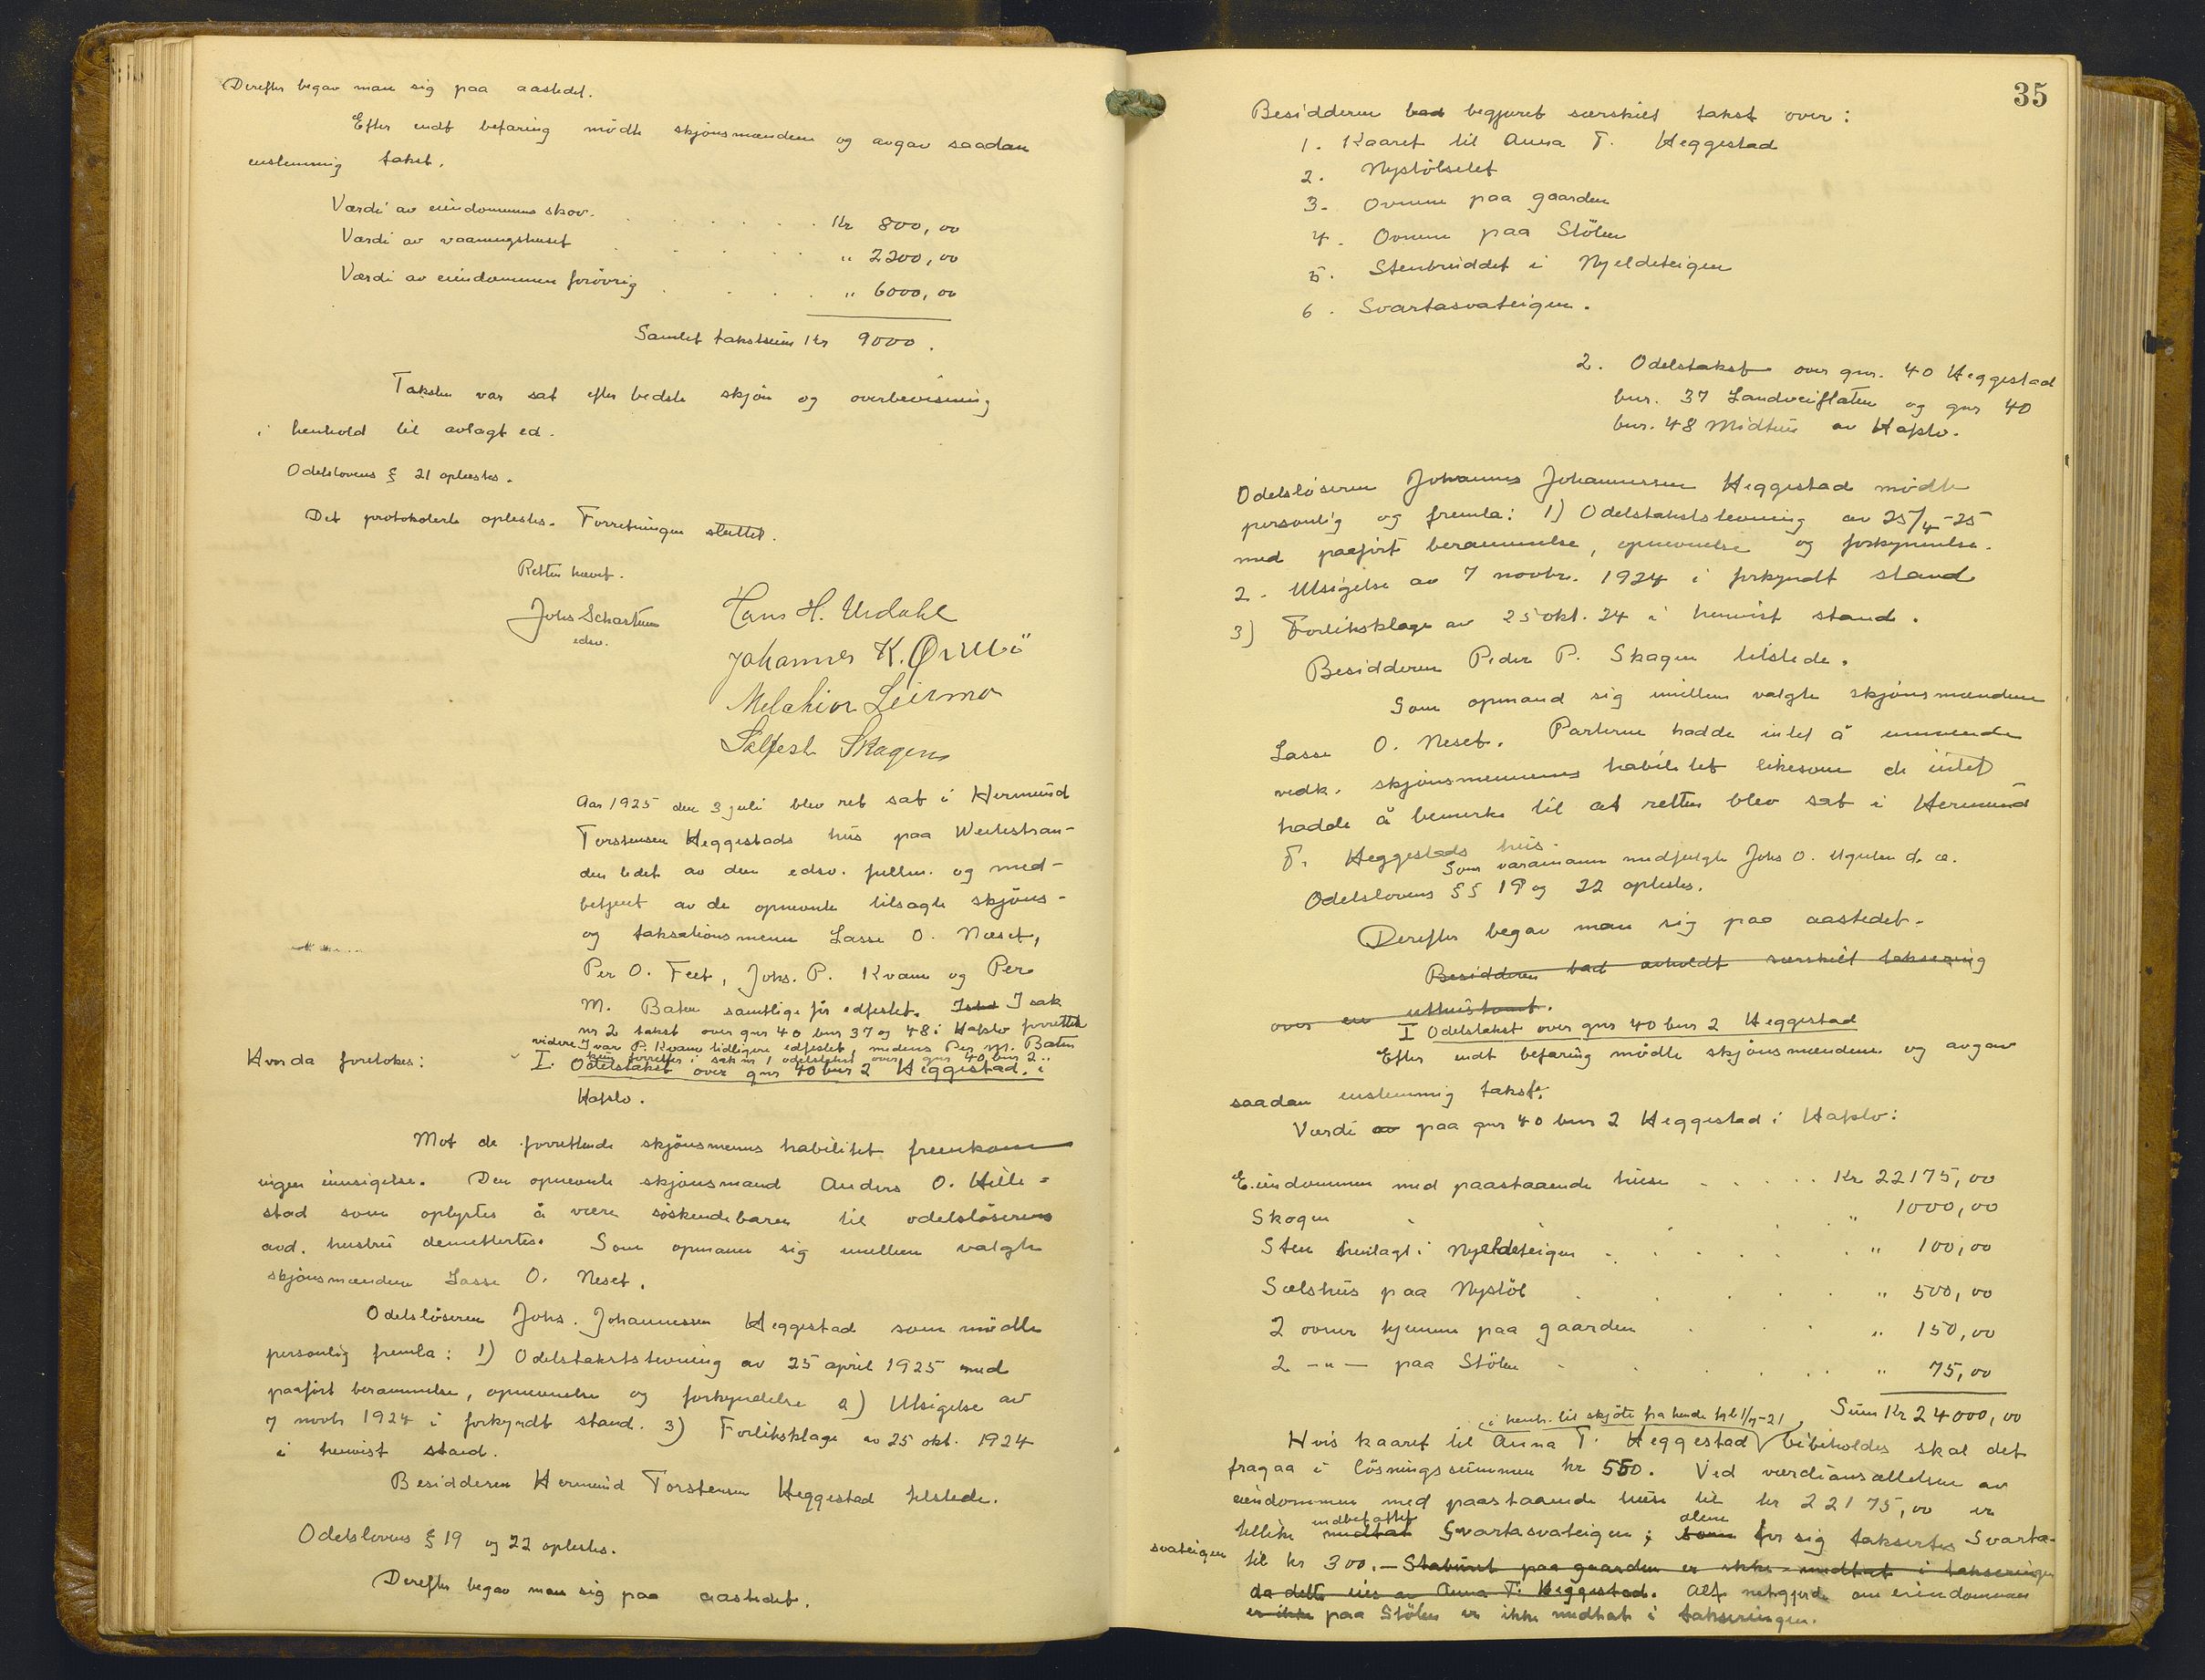 Derefter begav man sig paa aastedet.
Efter endt befaring mødte skjønsmændene og avgav saadan
enstemmig takst.
Værdi av eiendommens skov. Kr 800,00
Værdi av vaaningshuset " 2200,00
Værdi av eiendommen forøvrig " 6000,00
Samlet takstsum Kr 9000.
Taksten var sat efter bedste skjøn og overbevisning
i henhold til avlagt ed.
Odelslovens § 21 oplæstes.
Det protokolerte oplestes. Forretningen sluttet.
Retten hævet.
Johs Schartum
edsv.
Hans H. Urdahl
Johannes K. Ørull
Melchior Leirmo
Selfest Skagen
Aar 1925 den 3 juli blev ret sat i Hermund
Torstensen Heggestads hus paa Weitestran-
den ledet av den edsv. fullm. og med-
betjent av de opnevnte tilsagte skjøns-
og taksationsmenn Lasse O. Næset,
Per O. Feet, Johs. P. Kvam og Per
M. Baten samtlige før edfestet. I sak
nr 2 takst over gnr 40 bnr 37 og 48 i Hafslo forrettet
videre Ivar P. Kvam tidligere edfestet, medens Per M. Baten
kun forretter i sak nr 1 odelstakst over gnr 40 bnr 2.
Hvorda foretokes: I. Odelstakst over gnr 40 bnr 2 Heggestad i
Hafslo.
Mot de forrettende skjønsmenns habilitet fremkom
ingen innsigelse. Den opnevnte skjønsmand Anders O. Hille=
stad som oplystes å være søskendebarn til odelsløserens
avd. hustru demitertes. Som opmann sig imellem valgte
skjønsmændene Lasse O. Neset.
Odelsløseren Johs. Johannessen Heggestad som mødte
personlig fremla: 1) Odelstakststevning av 25 april 1925 med
paaført berammelse, opnevnelse og forkyndelse 2) Utsigelse av
7 novbr 1924 i forkyndt stand. 3) Forliksklage av 25 okt. 1924
i henvist stand.
Besidderen Hermund Torstensen Heggestad tilstede.
Odelslovens § 19 og 22 oplestes.
Derefter begav man sig paa aastedet.
35
Besidderen bad begjæret særskilt takst over:
1. Kaaret til Anna T. Heggestad
2. Nystølselet
3. Ovnene paa gaarden
4. Ovnene paa Stølen
5. Stenbruddet i Nyeldeteigen
6. Svartasvateigen.
2. Odelstakst over gnr. 40 Heggestad
bnr. 37 Landveiflaten og gnr 40
bnr. 48 Midttun av Hafslo.
Odelsløseren Johannes Johannessen Heggestad mødte
personlig og fremla: 1) Odelstakststevning av 25/4-25
med paaført berammelse, opnevnelse og forkynnelse.
2. Utsigelse av 7 novbr. 1924 i forkyndt stand
3) Forliksklage av 25 okt. 24 i henvist stand.
Besidderen Peder P. Skagen tilstede.
Som opmand sig imellem valgte skjønsmændene
Lasse O. Neset. Parterne hadde intet å innvende
vedk. skjønsmennenes habilitet likesom de intet
hadde å bemerke til at retten blev sat i Hermund
T. Heggestads hus.
Som varamann medfulgte Johs O.
Odelslovens §§ 19 og 22 oplestes.
Derefter begav man sig paa aastedet.
Besidderen bad avholdt særskilt taksering
over en
I Odelstakst over gnr 40 bnr 2 Heggestad
Efter endt befaring mødte skjønsmændene og avgav
saadan enstemmig takst:
Værdi av paa gnr 40 bnr 2 Heggestad i Hafslo:
Eiendommen med paastaaende huse Kr 22175,00
Skogen " 1000,00
Sten henlagt i Nyeldeteigen " 100,00
Sælshus paa Nystøl " 500,00
2 ovner hjemme paa gaarden " 150,00
2 -"- paa Stølen " 75,00
Sum Kr 24000,00
i henh. til skjøte fra hende tgl 1/7-21
Hvis kaaret til Anna T. Heggestad bibeholdes skal det
fragaa i løsningssummen kr 550. Ved værdiansættelsen av
eiendommen med paastaaende huse til kr 22175,00 er
indbefattet alene
tillike medtat Svartasvateigen; som for sig taksertes Svarta-
svateigen til kr 300.- Staburet paa gaarden er ikke medtat i takseringen
da dette eies av Anna T. Heggestad. Alt netgjerde om eiendommen
er ikke paa Stølen er ikke medtat i takseringen.